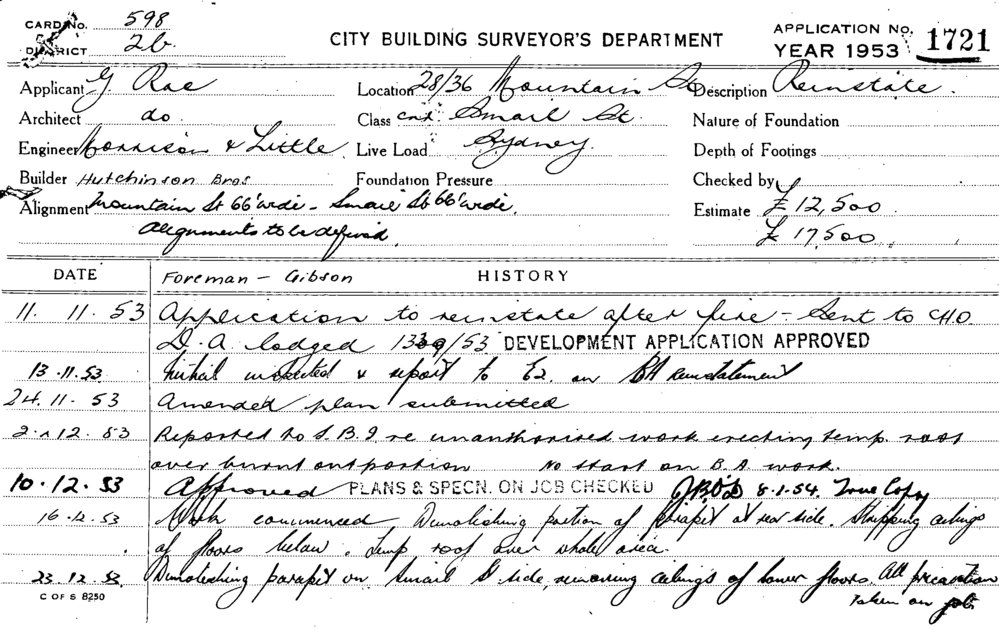 CARD No. 598
DISTRICT 2b
CITY BUILDING SURVEYOR'S DEPARTMENT
APPLICATION No. 1721
YEAR 1953
Applicant G Rae
Location 28/36 Mountain St
Description Reinstate.
Architect do
Class cnr. Smail St.
Nature of Foundation
Engineer Morrison & Little
Live Load Sydney.
Depth of Footings
Builder Hutchinson Bros
Foundation Pressure
Checked by
Alignment Mountain St 66' wide - Smail St 66' wide.
Estimate £12,500
Alignments to be defined.
£17,500
DATE Foreman - Gibson HISTORY
11. 11. 53 Application to reinstate after fire - Sent to C.H.O.
D.A lodged /53 DEVELOPMENT APPLICATION APPROVED
13.11.53 & report to on BA reinstatement
24.11.53 Amended plan submitted
12.53 Reported to S.B.I re unauthorised work erecting temp. roof
over burnt out portion No start on B.A. work.
10.12.53 Approved PLANS & SPECN. ON JOB CHECKED 8.1.54. True Copy
16.12.53 Work commenced, Demolishing portion of parapet at rear side. Stripping ceilings
of floors below. Temp roof over whole area.
23.12.53, Demolishing parapet on Smail St side, removing ceilings of lower floors. All precaution
taken on job.
C OF S 8250